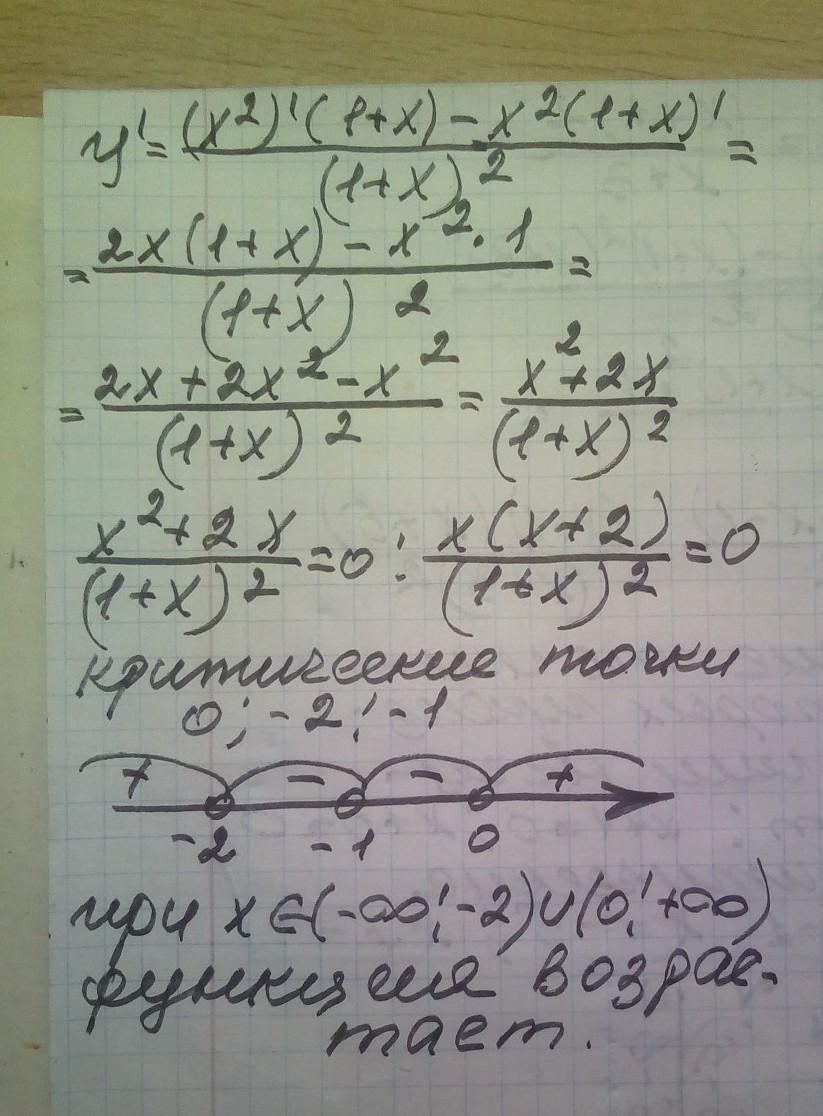 y' = ((x²)'(1+x) - x²(1+x)')/(1+x)² =
= (2x(1+x) - x²·1)/(1+x)² =
= (2x+2x²-x²)/(1+x)² = (x²+2x)/(1+x)²
(x²+2x)/(1+x)² = 0; (x(x+2))/(1+x)² = 0
критические точки
0; -2; -1
+ - - +
-2 -1 0
при x∈(-∞;-2)∪(0;+∞)
функция возрас-
тает.